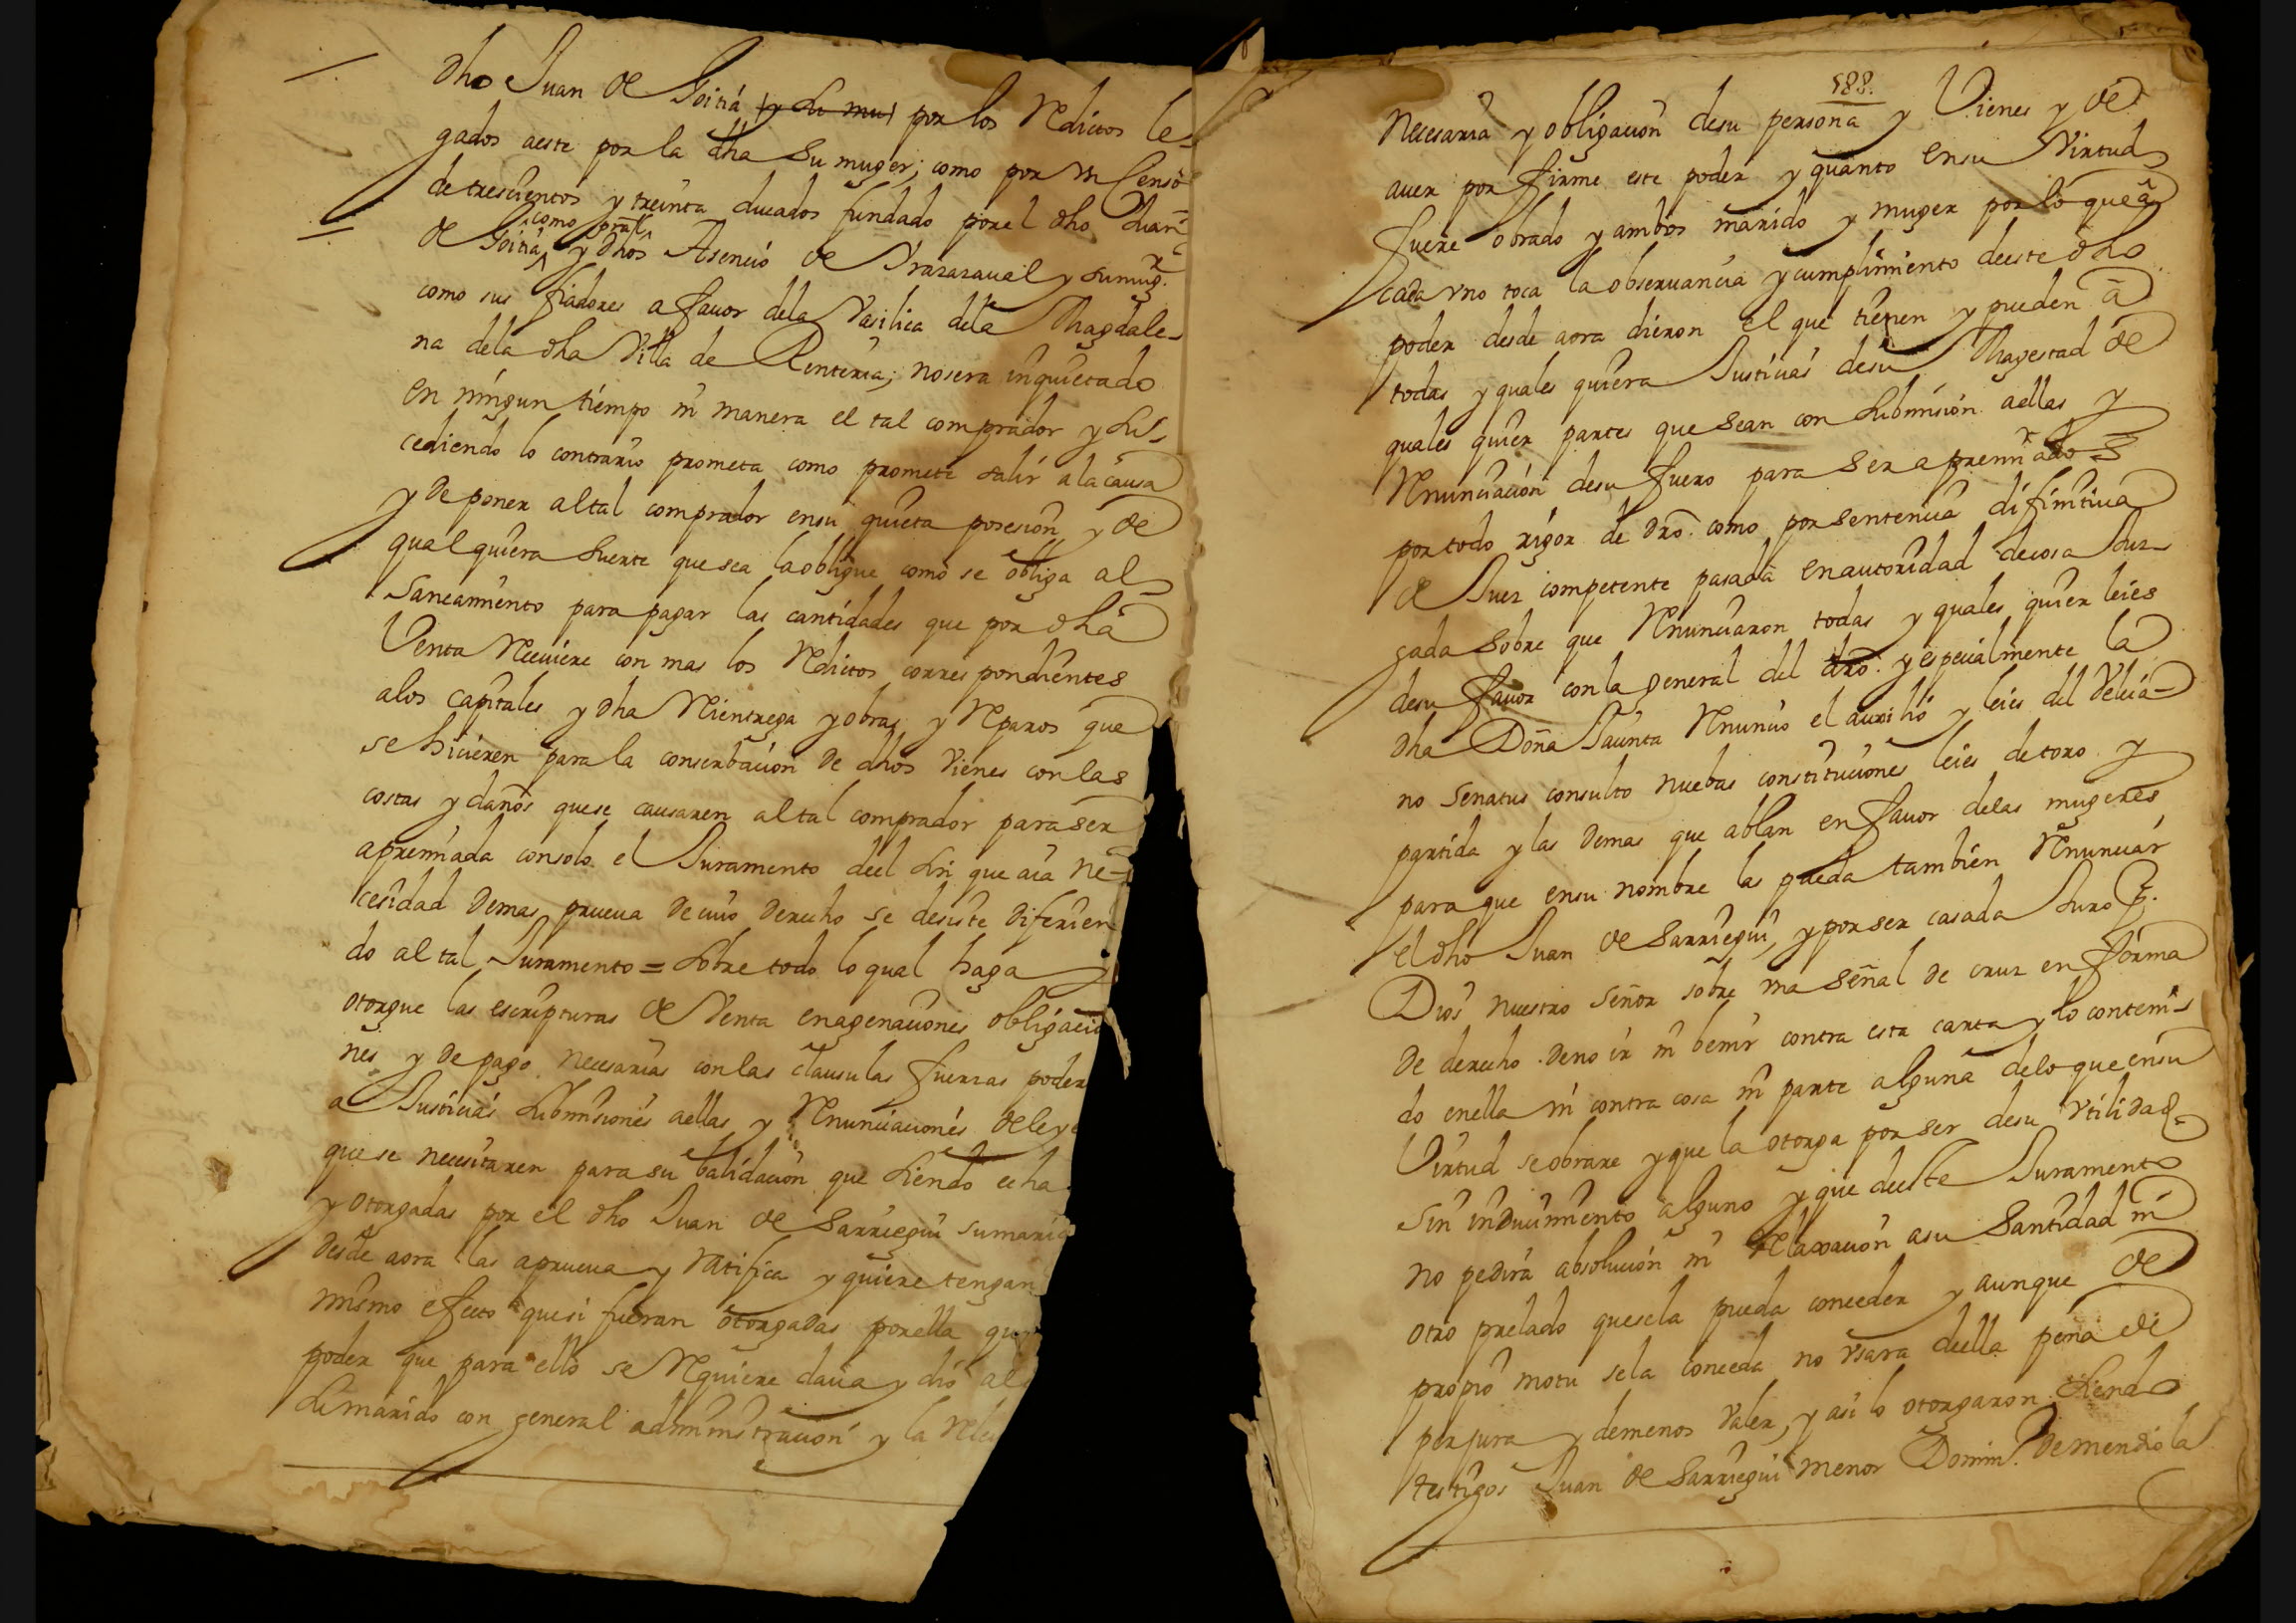 dho Juan de Goitiá y su mu por los Reditos le-
gados aeste por la dha su muger; como por vn Censo
de trescientos y treinta ducados fundado por el dho Juan
como pral
de Goitiá y dhos Asencio de Yrazazaual y sumugr.
como sus fiadores a fauor dela Vasilica dela Magdale-
na dela dha Villa de Renteria; nosera inquietado
en ningun tiempo ni manera el tal comprador y su-
cediendo lo contrario prometa como promete salir ala causa
y de poner altal comprador ensu quieta posesion, y de
qualquiera suerte que sea laobligue como se obliga al
saneamiento para pagar las cantidades que por dha
Venta Reciuiere con mas los Reditos correspondientes
alos capitales y dha Rientrega y obras y Reparos que
se hicieren para la conserbacion de dhos vienes con las
costas y daños quese causaren altal comprador para ser
apremiada consolo el Juramento deel sin que aia ne-
cesidad demas prueua decuio derecho se desiste difirien
do al tal Juramento = sobre todo lo qual haga y
otorgue las escripturas de Venta enagenaciones obligacio
nes y de pago necesarias con las clausulas fuerzas poder
a Justicias submisiones aellas y Renunciaciones de leye
quese necesitaren para su balidacion que siendo echa
y otorgadas por el dho Juan de Sarriegui sumarid
desde aora las aprueua y ratifica y quiere tengan
mismo efecto que si fueran otorgadas porella que
poder que para ello se Requiere daua y dio al
sumarido con general administracion y la Rele
188.
necesaria y obligacion desu persona y Vienes y de
auer por firme este poder y quanto ensu virtud
fuere obrado y ambos marido y muger por lo que a
cada vno toca la obseruancia y cumplimiento deeste dho
poder desde aora dieron el que tienen y pueden a
todas y quales quiera Justicias desu Magestad de
quales quier partes que sean con submision aellas y
Renunciacion desu fuero para ser apremiados
por todo rigor de dro. como por sentencia difinitiua
de Juez competente pasada en autoridad decosa Juz-
gada sobre que Renunciaron todas y quales quier leies
desu fauor con la general del dro. y especialmente la
dha Doña Jacinta Renuncio el auxilio y leies del Veleia-
no senatus consulto nuebas constituciones leies detoro y
partida y las demas que ablan en fauor delas mugeres
para que ensu nombre las pueda tambien Renunciar
el dho Juan de Sarriegui, y por ser casada Juro por
Dios nuestro señor sobre vna señal de cruz en forma
de derecho deno ir ni benir contra esta carta y lo conteni-
do enella ni contra cosa ni parte alguna delo que ensu
Virtud se obrare y que la otorga por ser desu vtilidad
sin inducimiento alguno y que deeste Juramento
no pedira absolucion ni Relaxacion asu Santidad ni
otro prelado quesela pueda conceder y aunque de
propio motu sela conceda no vsara deella pena de
perjura y demenos valer, y asi lo otorgaron siendo
testigos Juan de Sarriegui menor Domin.o demendiola